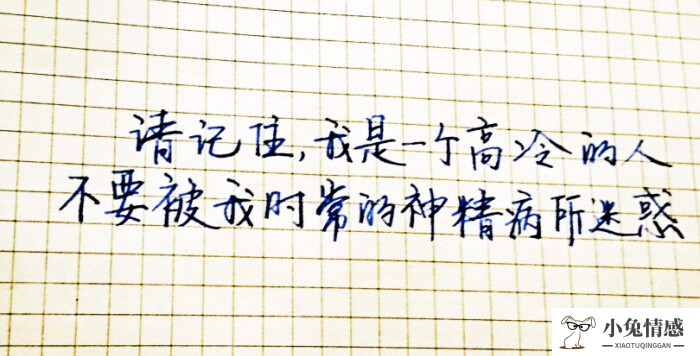 请记住,我是一个高冷的人
不要被我时常的神精病所迷惑
小兔情感
XIAOTUQINGGAN